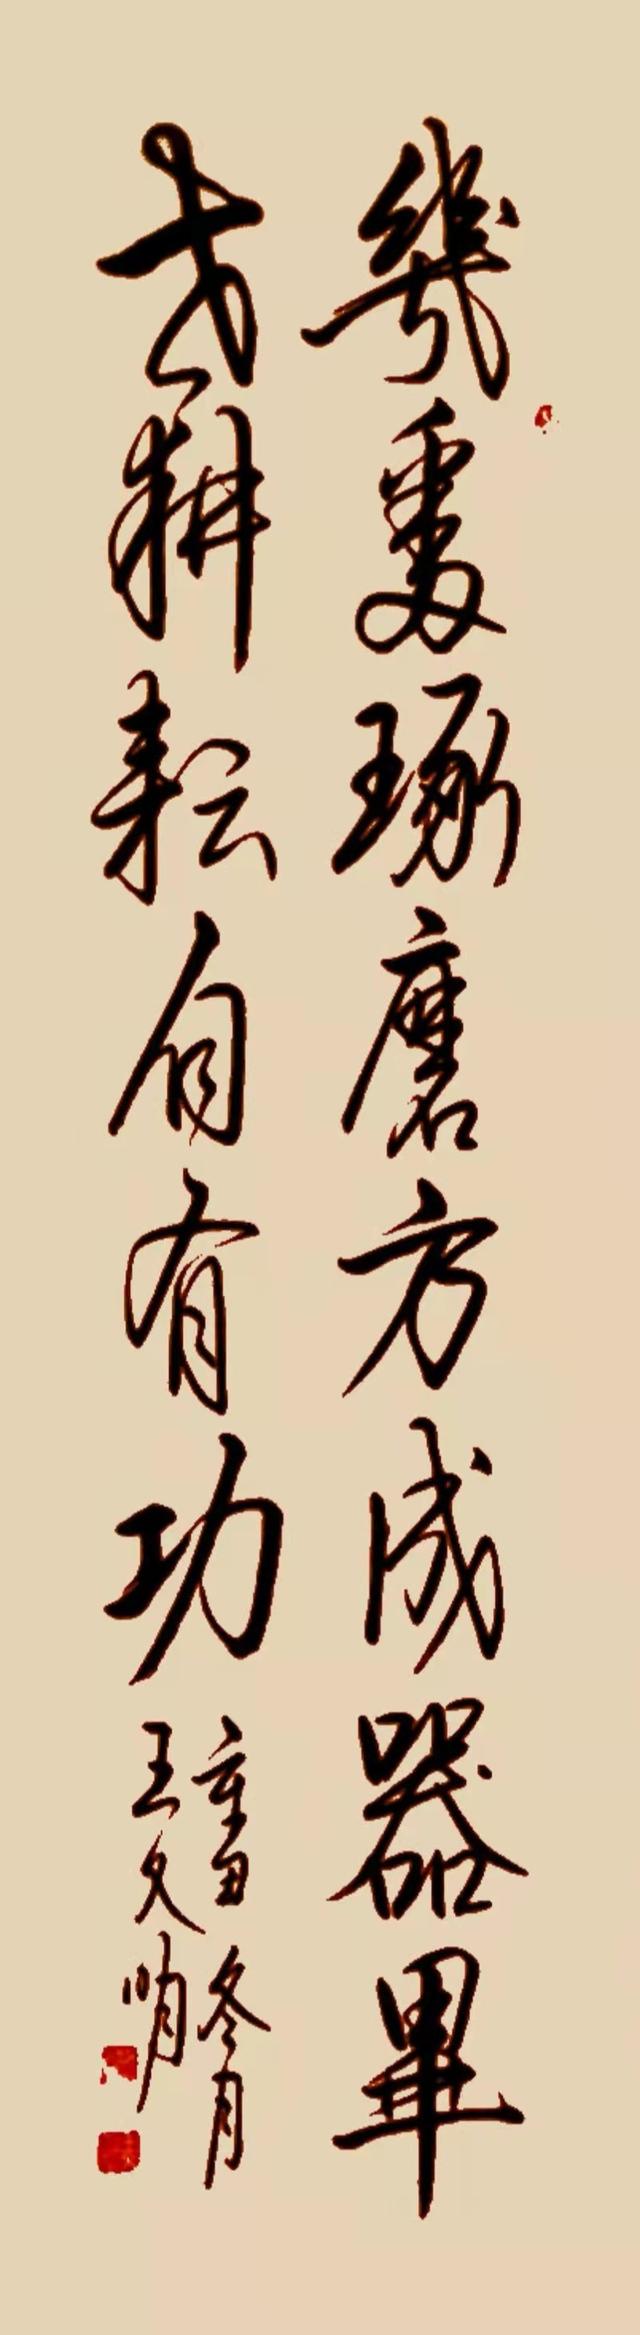 幾番琢磨方成器畢
世耕耘自有功
辛丑冬月
王久明